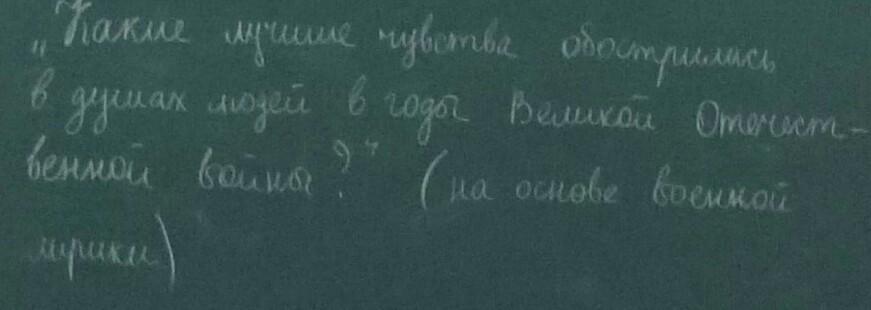 „Какие лучшие чувства обострились
в душах людей в годы Великой Отечест-
венной войны?" (на основе военной
лирики)